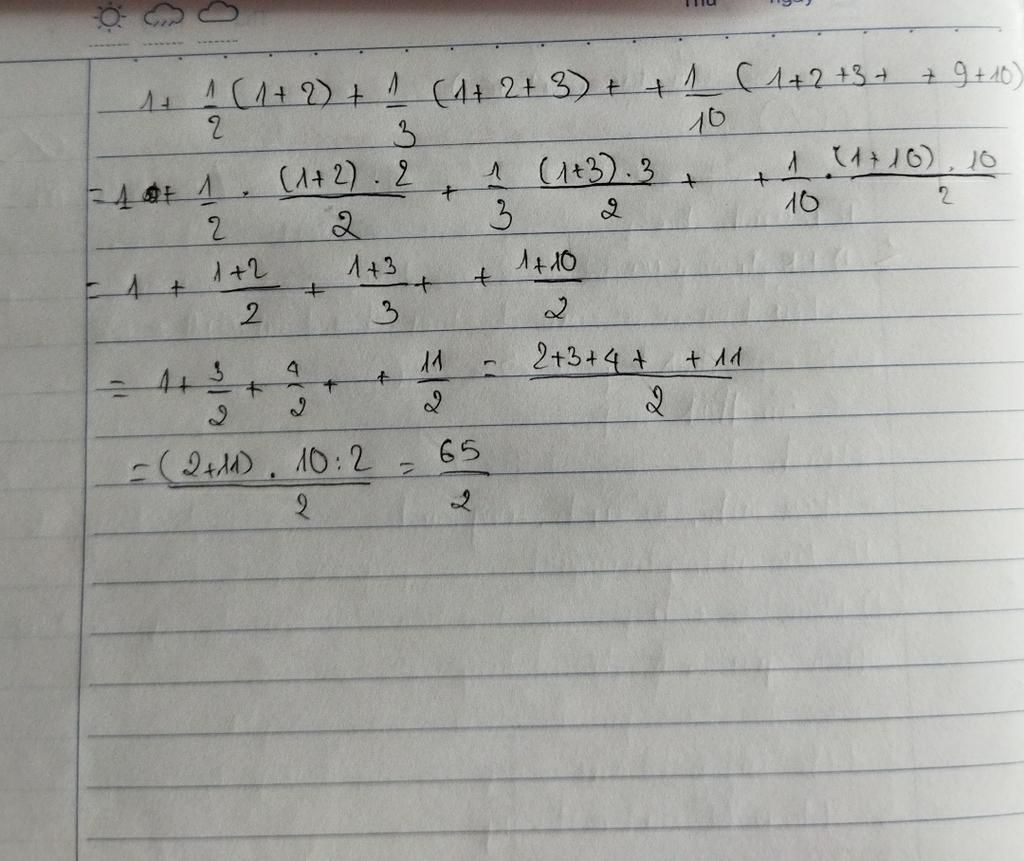 Thứ ngày
1 + 1/2 (1+2) + 1/3 (1+2+3) + + 1/10 (1+2+3+ + 9+10)
= 1 + 1/2 . (1+2) . 2/2 + 1/3 (1+3) . 3/2 + + 1/10 . (1+10) . 10/2
= 1 + 1+2/2 + 1+3/3 + + 1+10/2
= 1 + 3/2 + 4/2 + + 11/2 = 2+3+4+ +11/2
= (2+11) . 10:2/2 = 65/2